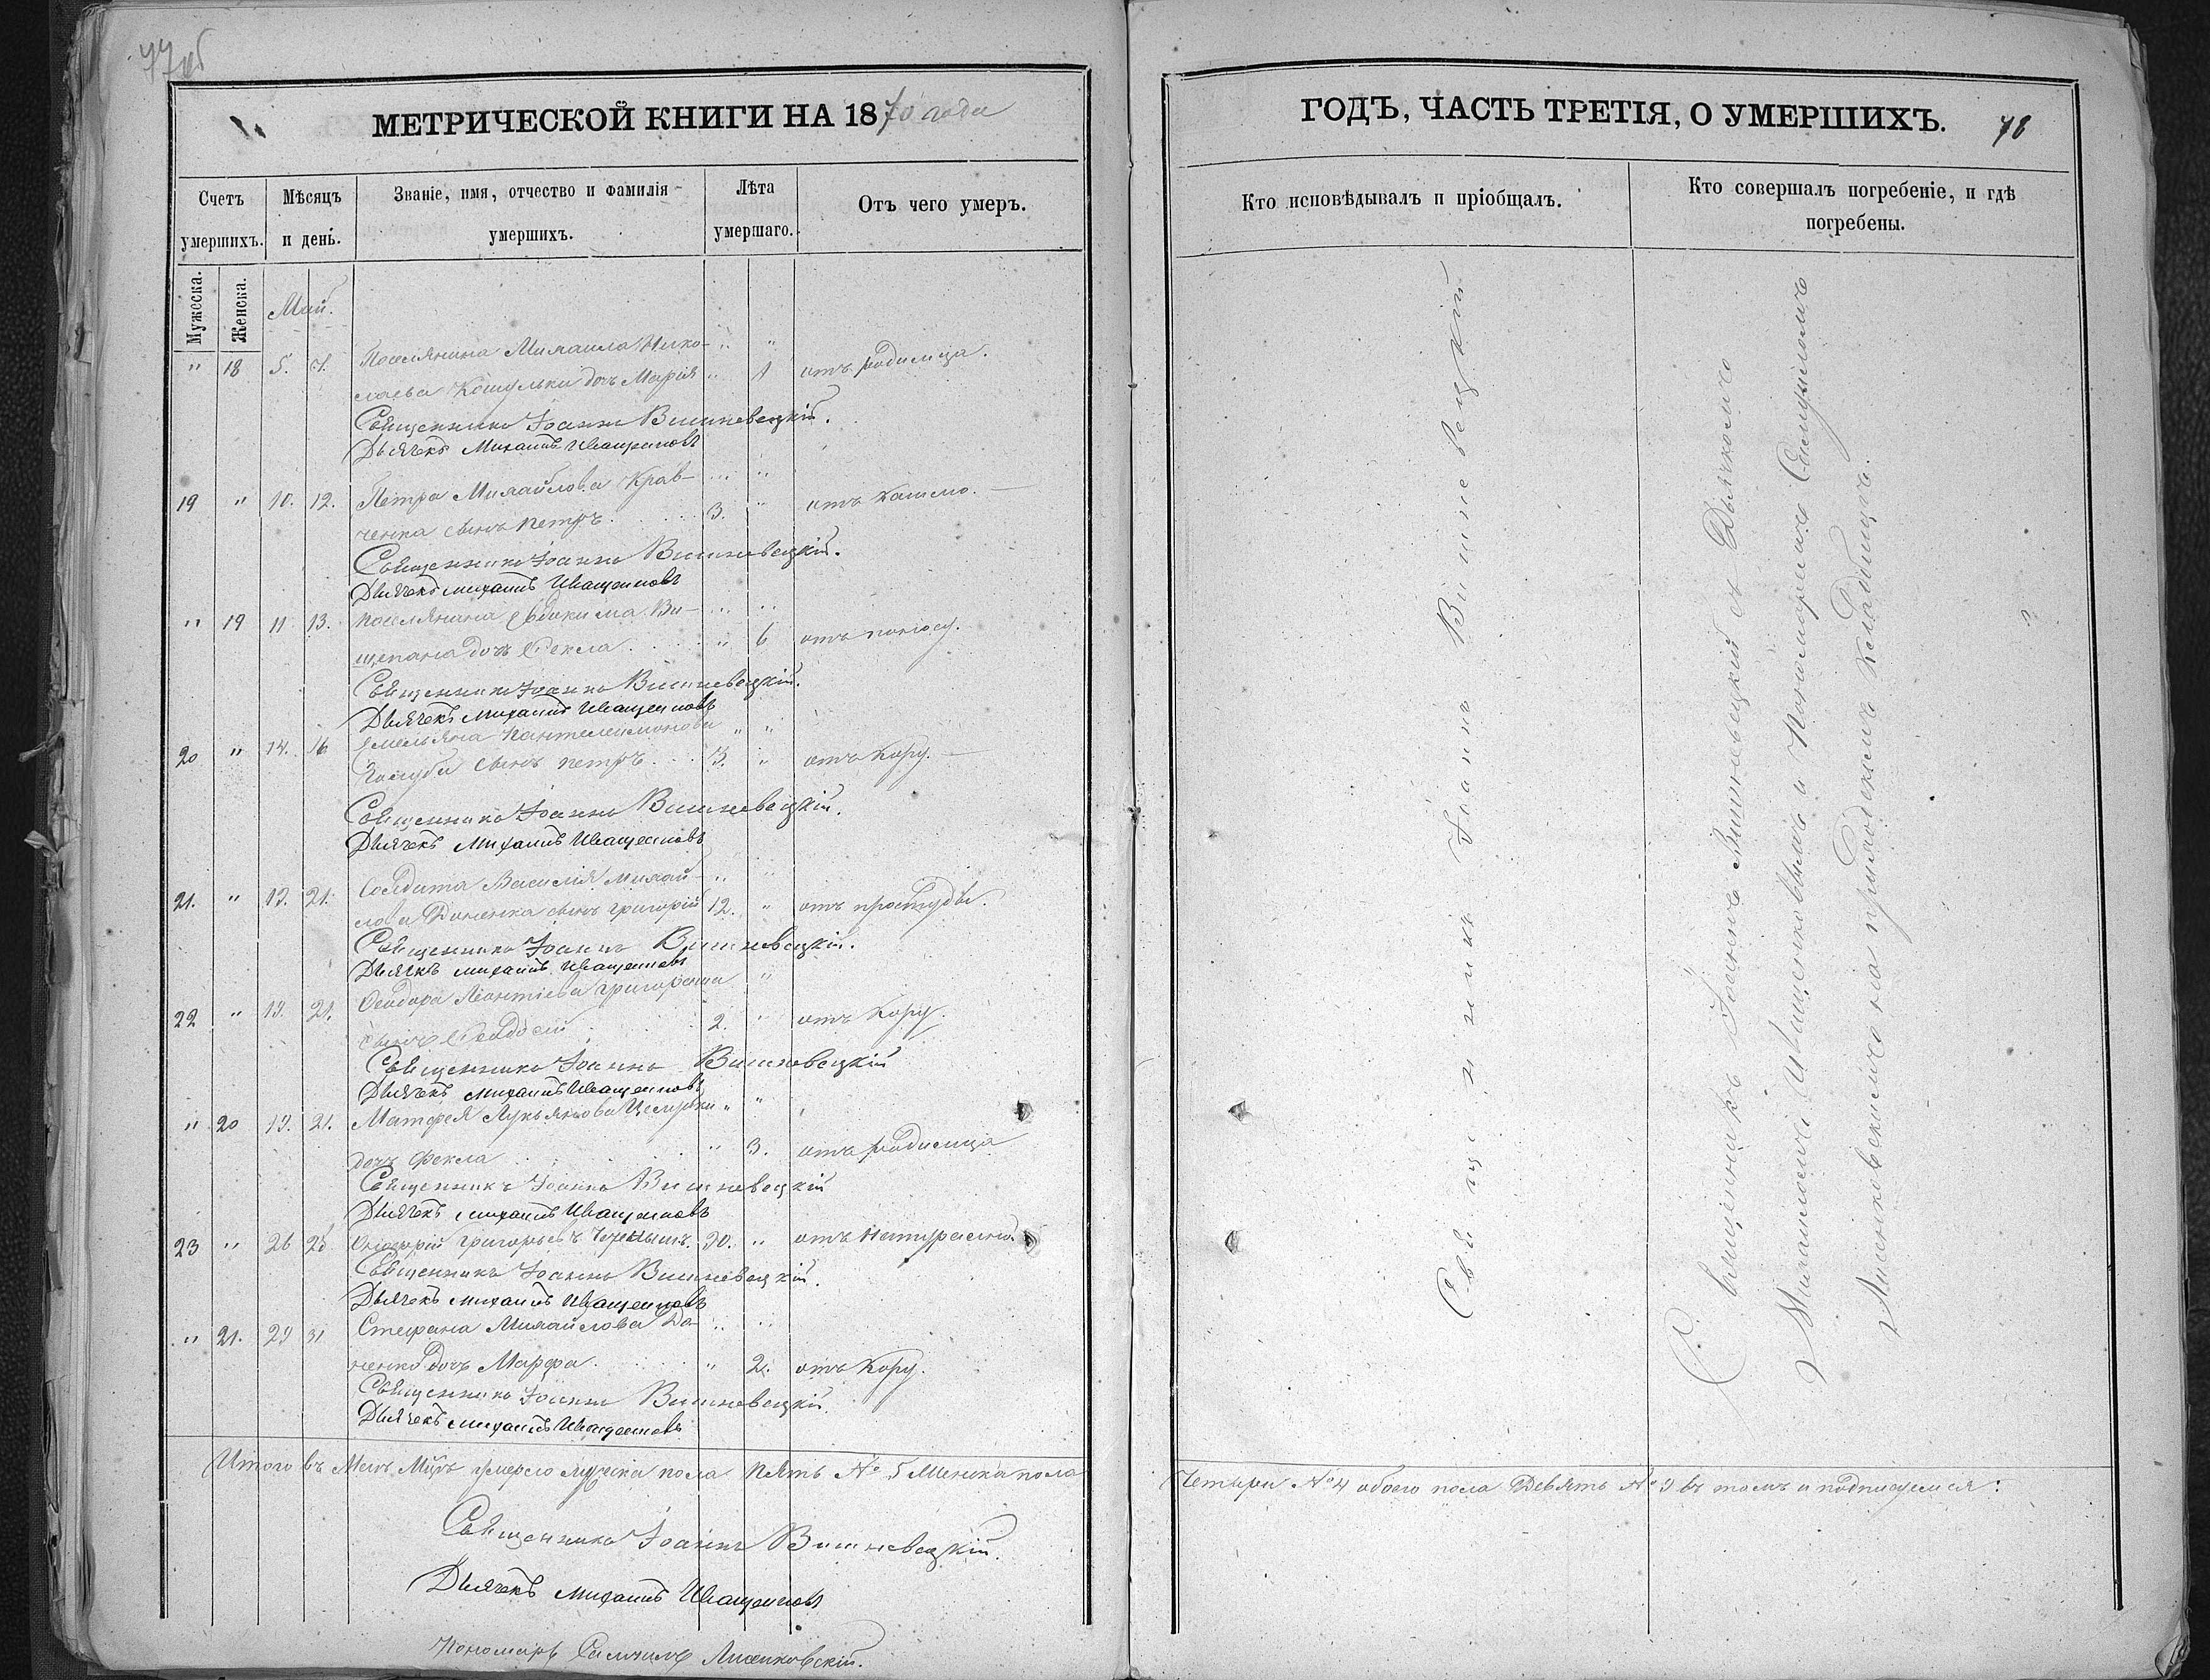 77об
МЕТРИЧЕСКОЙ КНИГИ НА 1870 года
Счетъ умершихъ.
Мужеска.
Женска.
Мѣсяцъ и день.
Званіе, имя, отчество и фамилія умершихъ.
Лѣта умершаго.
Отъ чего умеръ.
Май.
" 18 5. 7. Поселянина Михаила Нико-
лаева дочь Марія " 1 отъ родимца.
Священникъ Іоаннъ Вишневецкій.
Дьячекъ Михаилъ Иващенковъ
19 " 10. 12. Петра Михайлова Крав-
ченка сынъ Петръ 3. " отъ кашлю.
Священникъ Іоаннъ Вишневецкій.
Дьячекъ Михаилъ Иващенковъ
" 19 11 13. Поселянина Евдокима Ви-
щепана дочь Фекла " 6 отъ поносу.
Священникъ Іоаннъ Вишневецкій.
Дьячекъ Михаилъ Иващенковъ
20 " 14. 16 Емельяна Пантелеимонова
Голуба сынъ Петръ 3. " отъ кору.
Священникъ Іоаннъ Вишневецкій.
Дьячекъ Михаилъ Иващенковъ
21. " 19. 21. Солдата Василія Михай-
лова Доненка сынъ Григорій 12. " отъ простуды.
Священникъ Іоаннъ Вишневецкій.
Дьячекъ Михаилъ Иващенковъ
22 " 19. 21. Феодора Леонтіева
сынъ Феодосій 2. " отъ кору.
Священникъ Іоаннъ Вишневецкій
Дьячекъ Михаилъ Иващенковъ
" 20 19. 21. Матфея Лукьянова
дочь Фекла " 3. отъ родимца
Священникъ Іоаннъ Вишневецкій
Дьячекъ Михаилъ Иващенковъ
23 " 26 28 Григорьевъ отъ натуральной
Священникъ Іоаннъ Вишневецкій.
Дьячекъ Михаилъ Иващенковъ
" 21. 29 31 Стефана Михайлова До-
ненка дочь Марфа " 2. отъ кору.
Священникъ Іоаннъ Вишневецкій
Дьячекъ Михаилъ Иващенковъ
Итого въ Маѣ М-цѣ умерло мужеска пола пять № 5 женска пола
Священникъ Іоаннъ Вишневецкій.
Дьячекъ Михаилъ Иващенковъ
Пономарь Самуилъ Лисенковскій.
ГОДЪ, ЧАСТЬ ТРЕТІЯ, О УМЕРШИХЪ. 78
Кто исповѣдывалъ и пріобщалъ.
Кто совершалъ погребеніе, и гдѣ погребены.
Священникъ Іоаннъ Вишневецкій
Священникъ Іоаннъ Вишневецкій съ Дьячкомъ
Михаиломъ Иващенковымъ и Пономаремъ Самуиломъ
Лисенковскимъ на приходскомъ кладбищѣ.
Четыри № 4 обоего пола Девять № 9 въ томъ и подписуемся: